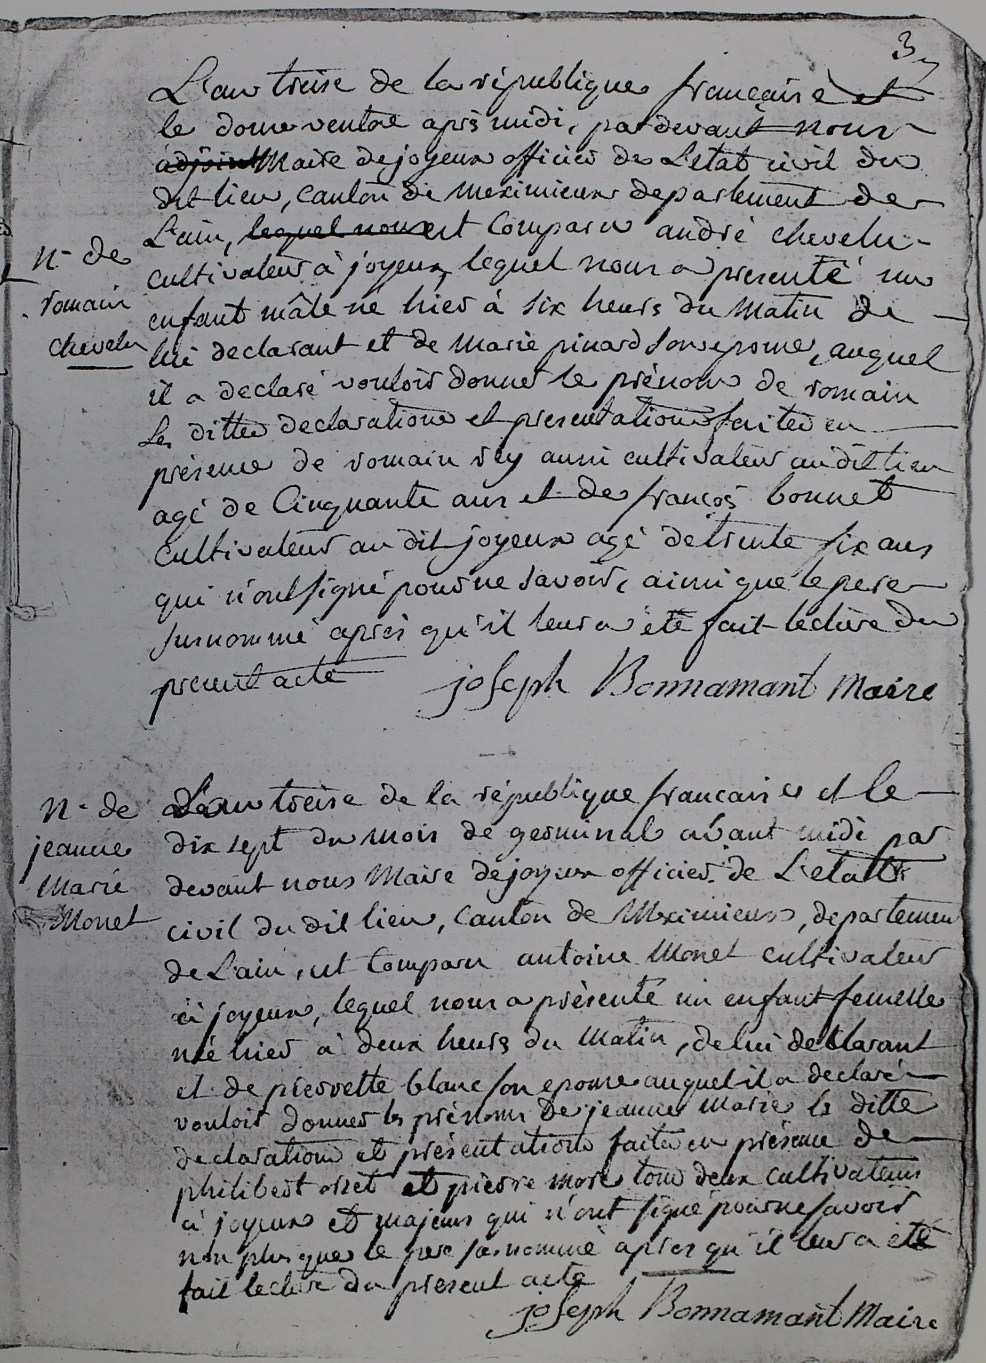 3
L'an treise de la république française et
le douse ventose aprés midi, par devant nous
adjoint Maire de joyeux officier de L'etat civil du
dit lieu, canton de meximieux departement de
L'ain, lequel nous est Comparu andré chevelu
cultivateur à joyeux, lequel nous a presenté un
enfant mâle né hier à six heurs du matin de
lui declarant et de marie pinard son epouse, auquel
il a declaré vouloir donner le prénom de romain
Les dittes declaration et presentation faites en
présence de romain rey aussi cultivateur au dit lieu
agé de Cinquante ans et de françois bonnet
cultivateur au dit joyeux agé de trente six ans
qui n'ont signé pour ne savoir, ainsi que le pere
susnommé aprés qu'il leur a été fait lecture du
present acte
joseph Bonnamant Maire
N. de
romain
chevelu
N. de
jeanne
Marie
Monet
L'an treise de la république française et le
dix sept du mois de germinal avant midi par
devant nous Maire de joyeux officier de L'etat
civil du dit lieu, Canton de Meximieux, departemen
de L'ain, est Comparu antoine Monet cultivateur
à joyeux, lequel nous a présenté un enfant femelle
née hier à deux heurs du matin, de lui declarant
et de pierrette blanc son epouse auquel il a declaré
vouloir donner les prénoms de jeanne marie la ditte
declaration et présentation faite en présence de
philibert orset et pierre more tous deux cultivateurs
à joyeux et majeurs qui n'ont signé pour ne savoir
non plus que le pere susnommé aprés qu'il leur a été
fait lecture du present acte
joseph Bonnamant Maire